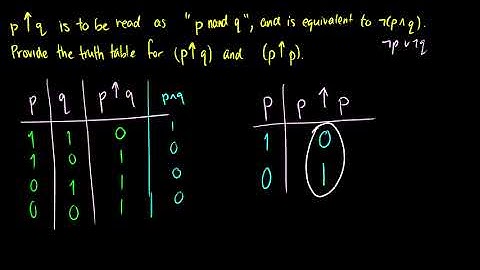 p ↑ q is to be read as "p nand q", and is equivalent to ¬(p∧q).
Provide the truth table for (p↑q) and (p↑p). ¬p ∨ ¬q
p q p ↑ q p∧q
1 1 0 1
1 0 1 0
0 1 1 0
0 0 1 0
p p ↑ p
1 0
0 1